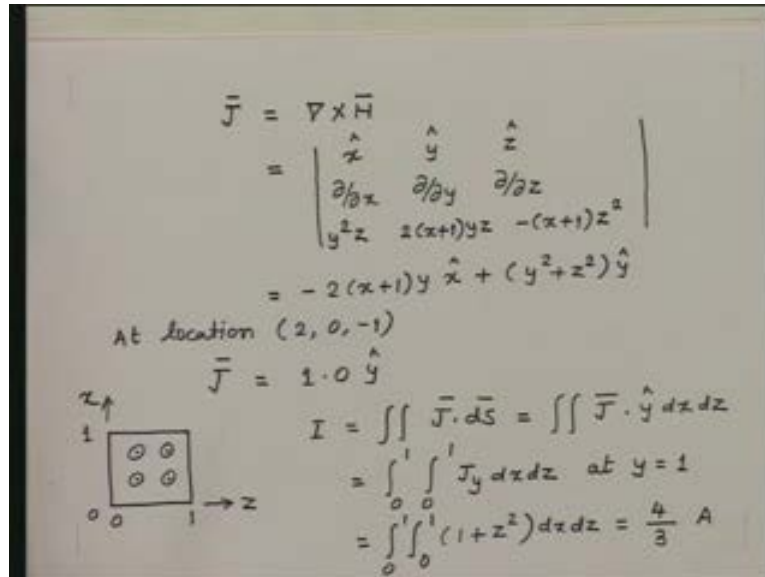 J̄ = ∇ × H̄
= | x̂ ŷ ẑ
∂/∂x ∂/∂y ∂/∂z
y²z 2(x+1)yz -(x+1)z² |
= - 2(x+1)y x̂ + (y²+z²) ŷ
At location (2, 0, -1)
J̄ = 1.0 ŷ
I = ∫∫ J̄ · d̄S = ∫∫ J̄ · ŷ dx dz
= ∫₀¹ ∫₀¹ Jy dx dz at y = 1
= ∫₀¹ ∫₀¹ (1+z²) dx dz = 4/3 A
x
1
0 0 1 → z